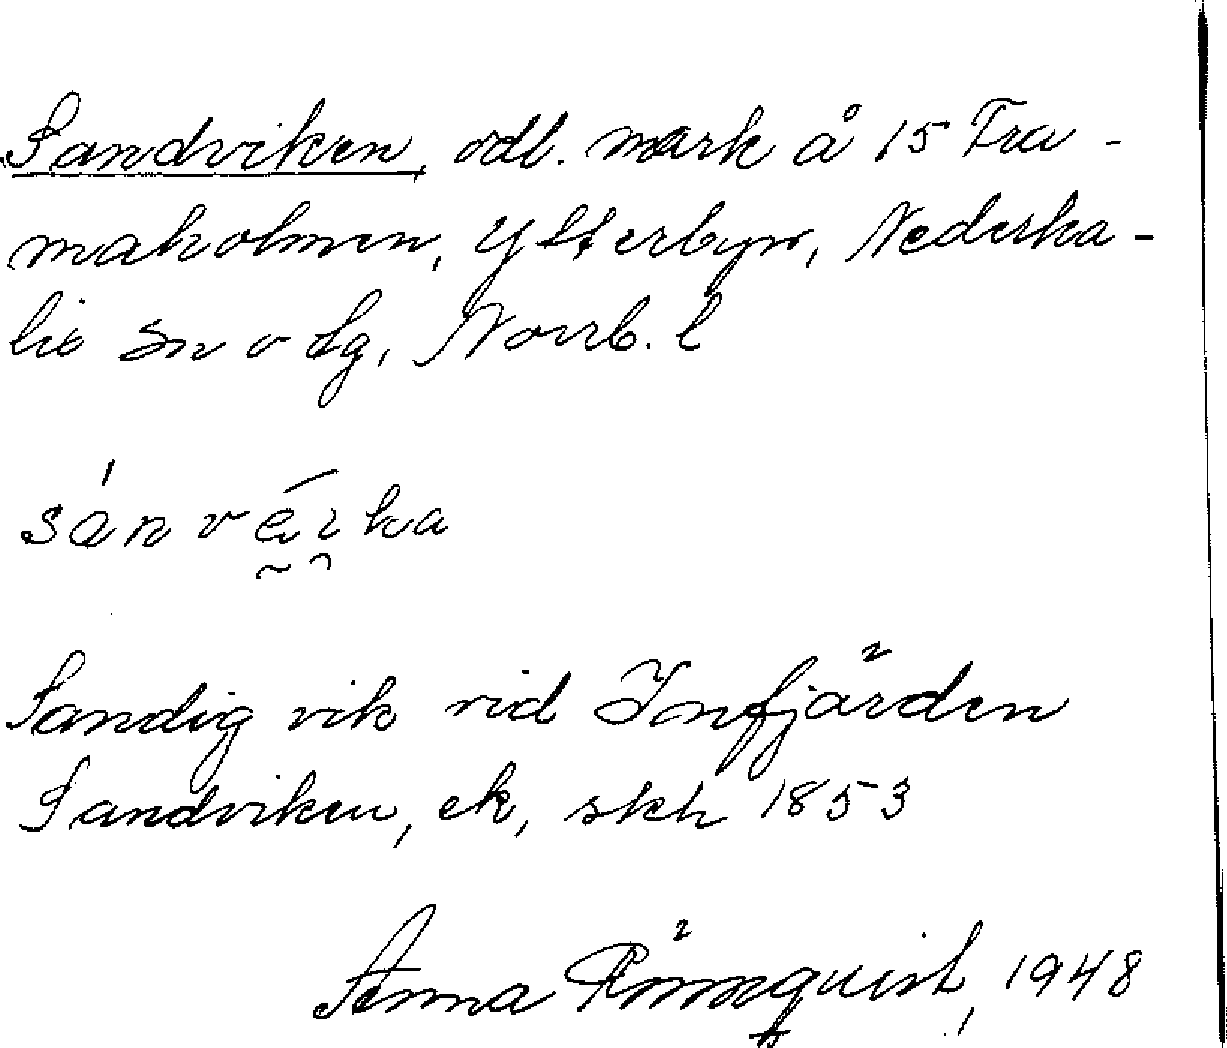 Sandviken, odl. mark å 15 Fra-
maholmen, Ytterbyn, Nederka-
lix sn o tg, Norrb. l
Sandig vik vid Infjärden
Sandviken, ek, skh 1853
Anna Rönnquist, 1948